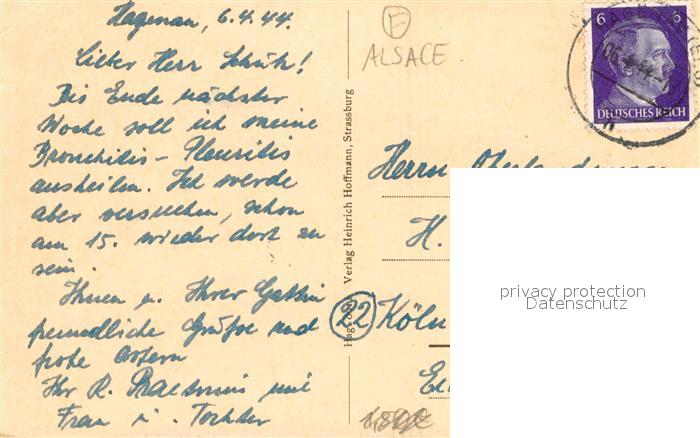 Hagenau, 6.4.44.
Lieber Herr Schütz!
Bis Ende nächster
Woche soll ich meine
Bronchitis - Pleuritis
ausheilen. Ich werde
aber versuchen, schon
am 15. wieder dort zu
sein.
Ihnen u. Ihrer Gattin
freundliche Grüße und
frohe Ostern
Ihr R. und
Frau u. Tochter
Verlag Heinrich Hoffmann, Strassburg
F
ALSACE
6 6
DEUTSCHES REICH
Herrn
H.
22 Köln
privacy protection
Datenschutz